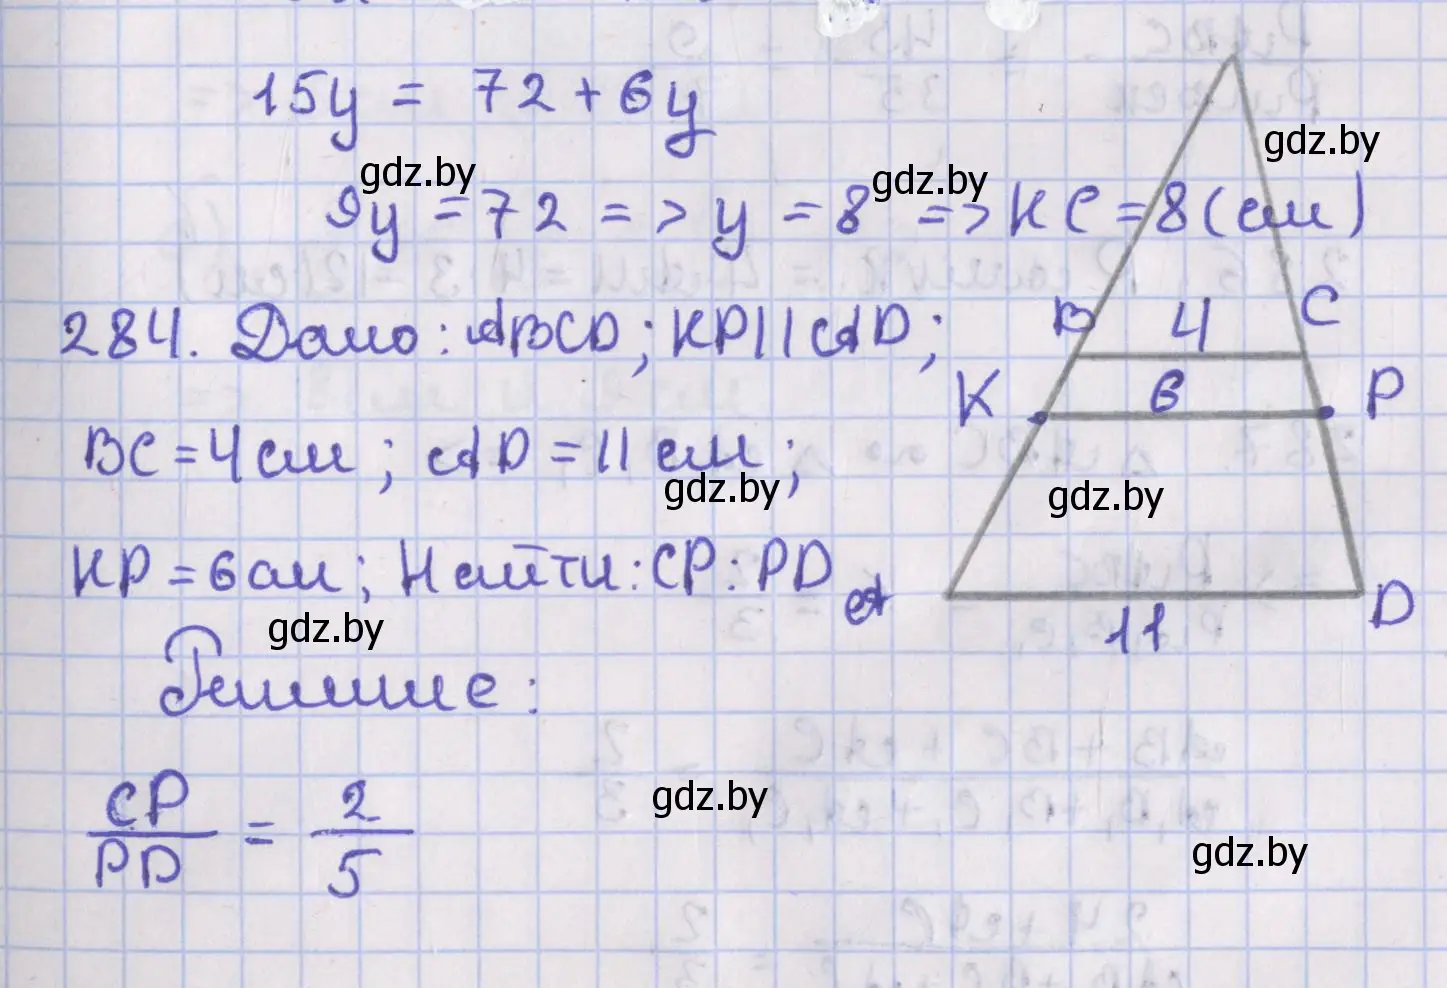 15y = 72 + 6y
9y = 72 => y = 8 => KC = 8 (см)
284. Дано: ABCD; KP || AD;
BC = 4 см; AD = 11 см;
KP = 6 см; Найти: CP : PD
Решение:
CP/PD = 2/5
B 4 C
K 6 P
A 11 D
gdz.by
gdz.by
gdz.by
gdz.by
gdz.by
gdz.by
gdz.by
gdz.by